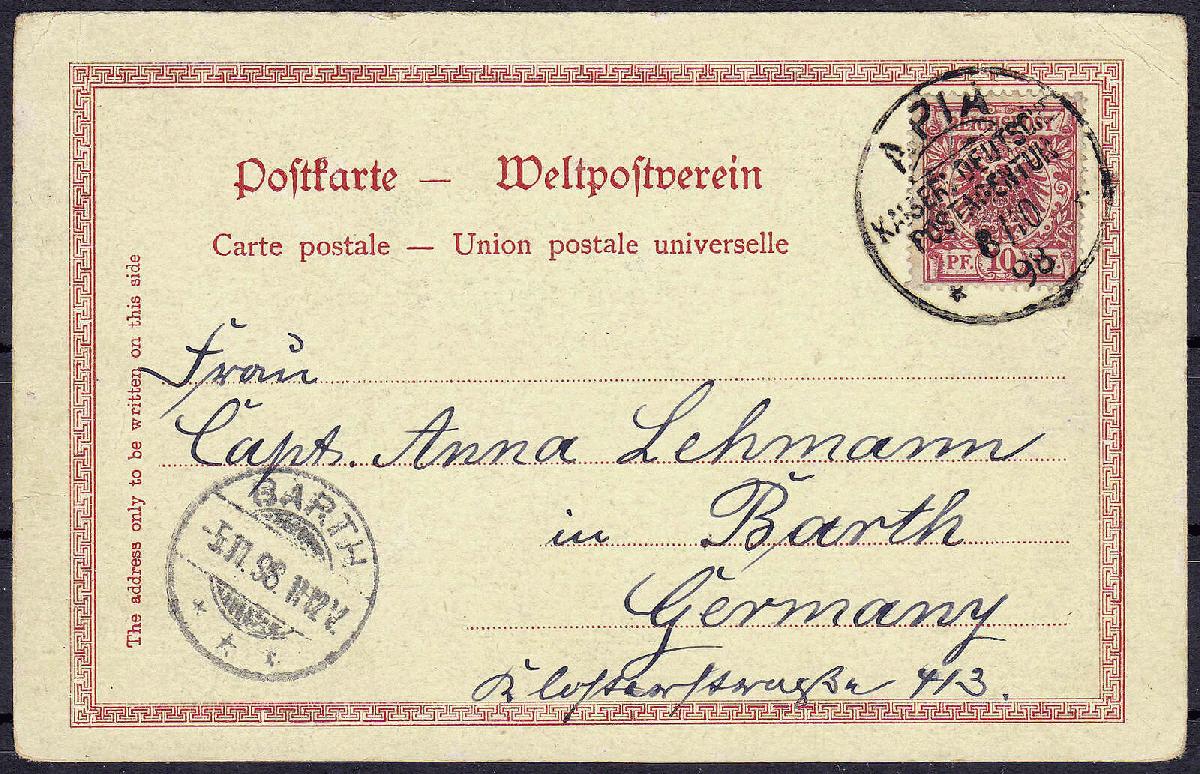 Postkarte — Weltpostverein
Carte postale — Union postale universelle
The address only to be written on this side
APIA
KAISERL. DEUTSCHE
POSTAGENTUR
98
REICHSPOST
PF. 10 PF.
Frau
Capt. Anna Lehmann
in Barth
Germany
Klosterstraße 413.
BARTH
-5.11.98. 11-12 V.